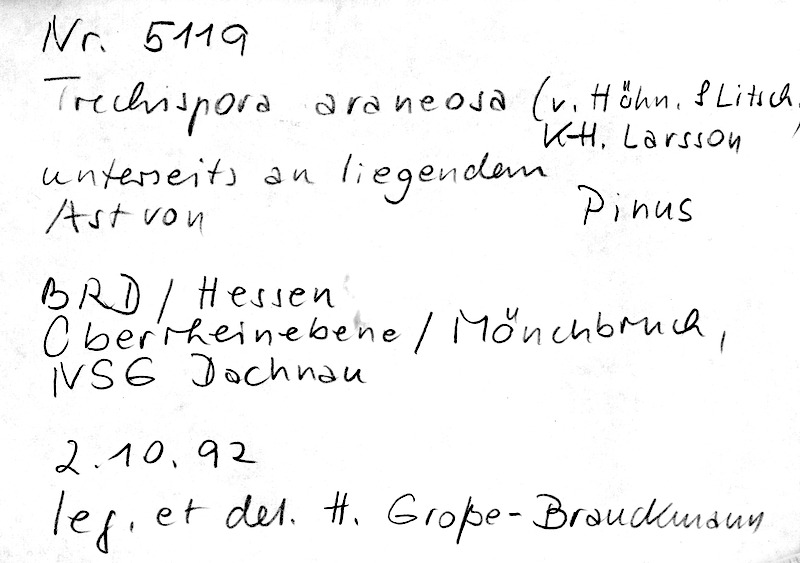 Nr. 5119
Trechispora araneosa (v. Höhn. & Litsch.)
K-H. Larsson
unterseits an liegendem
Ast von Pinus
BRD / Hessen
Oberrheinebene / Mönchbruch,
NSG Dachnau
2.10.92
leg. et det. H. Große-Brauckmann